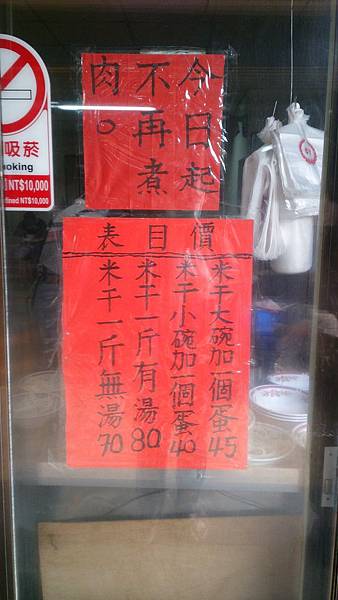 今日起
不再煮
肉。
價目表
米干大碗加一個蛋45
米干小碗加一個蛋40
米干一斤有湯80
米干一斤無湯70
吸菸
oking
NT$10,000
fined NT$10,000